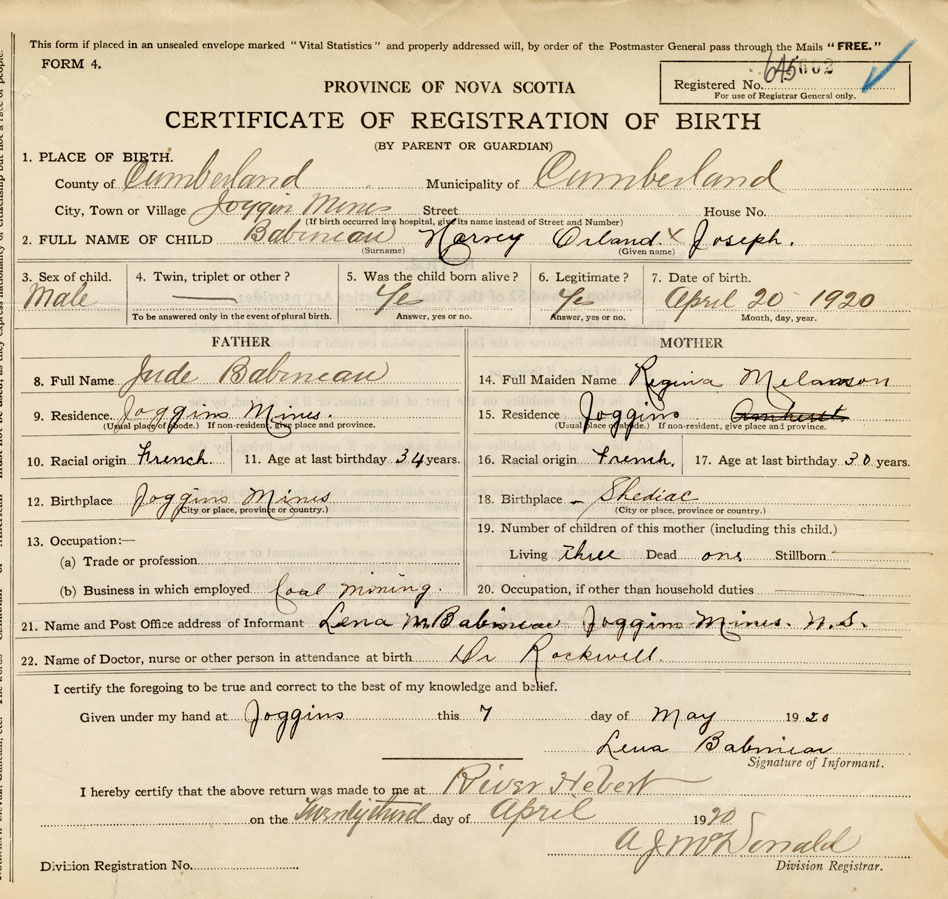 This form if placed in an unsealed envelope marked "Vital Statistics" and properly addressed will, by order of the Postmaster General pass through the Mails "FREE."
FORM 4.
PROVINCE OF NOVA SCOTIA
Registered No. 645602
For use of Registrar General only.
CERTIFICATE OF REGISTRATION OF BIRTH
(BY PARENT OR GUARDIAN)
1. PLACE OF BIRTH.
County of Cumberland Municipality of Cumberland
City, Town or Village Joggin Mines Street House No.
(If birth occurred in a hospital, give its name instead of Street and Number)
2. FULL NAME OF CHILD Babineau Harvey Orland x Joseph.
(Surname) (Given name)
3. Sex of child. 4. Twin, triplet or other? 5. Was the child born alive? 6. Legitimate? 7. Date of birth.
Male — Ye Ye April 20 - 1920
To be answered only in the event of plural birth. Answer, yes or no. Answer, yes or no. Month, day, year.
FATHER MOTHER
8. Full Name Jude Babineau 14. Full Maiden Name Regina Melanson
9. Residence. Joggins Mines. 15. Residence Joggins Amherst.
(Usual place of abode.) If non-resident, give place and province. (Usual place of abode.) If non-resident, give place and province.
10. Racial origin French. 11. Age at last birthday 34 years. 16. Racial origin French, 17. Age at last birthday 30 years.
12. Birthplace Joggins Mines 18. Birthplace - Shediac
(City or place, province or country.) (City or place, province or country.)
13. Occupation:— 19. Number of children of this mother (including this child.)
(a) Trade or profession Living three Dead one Stillborn
(b) Business in which employed Coal mining. 20. Occupation, if other than household duties
21. Name and Post Office address of Informant Lena M Babineau Joggins Mines. N.S.
22. Name of Doctor, nurse or other person in attendance at birth Dr Rockwell.
I certify the foregoing to be true and correct to the best of my knowledge and belief.
Given under my hand at Joggins this 7 day of May 1920
Lena Babineau
Signature of Informant.
I hereby certify that the above return was made to me at River Hebert
on the Twenty third day of April 1920
A J McDonald
Division Registration No. Division Registrar.